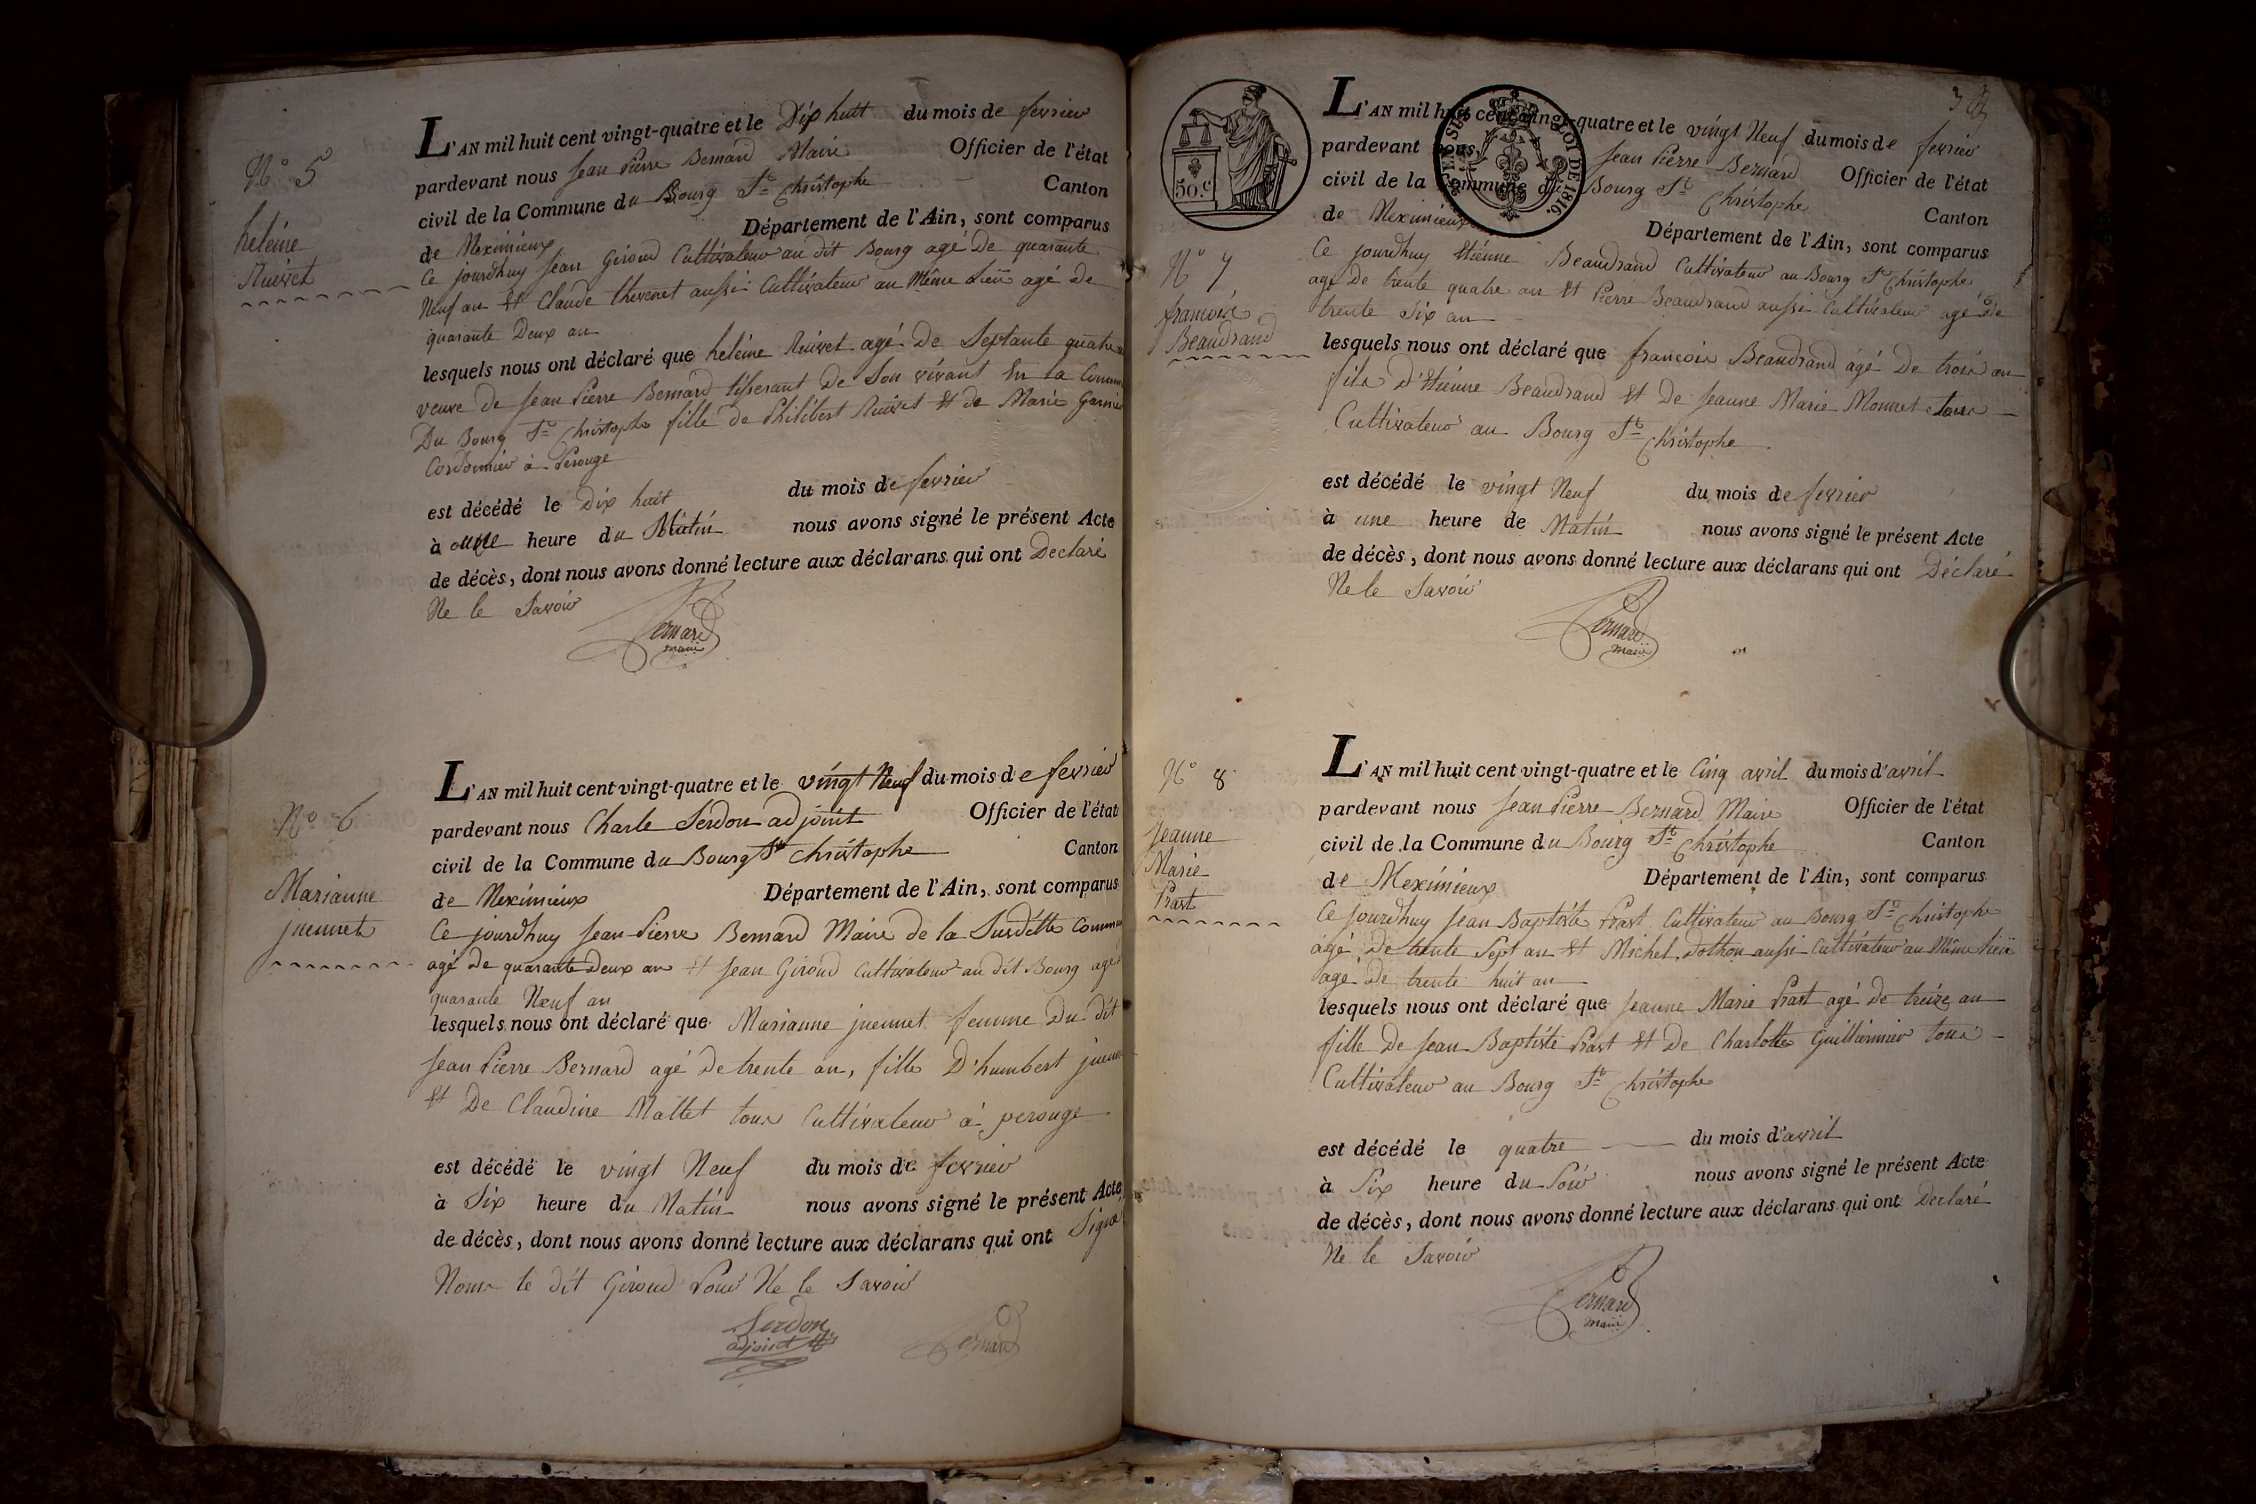 N° 5
heleine
Ruivet
L'AN mil huit cent vingt-quatre et le Dix huit du mois de fevrier
pardevant nous Jean Pierre Bernard Maire Officier de l'état
civil de la Commune du Bourg St Christophe Canton
de Meximieux Département de l'Ain, sont comparus
Ce jourdhuy Jean Giroud Cultivateur au dit Bourg agé De quarante
Neuf an Et Claude thevenet aussi Cultivateur au Même Lieu agé de
quarante Deux an
lesquels nous ont déclaré que heleine Ruivet agé De Septante quatre
veuve de Jean Pierre Bernard tisserant de Son vivant En la Comm
Du Bourg St Christophe fille de Philibert Ruivet Et de Marie Garnier
Cordonnier à Perouge
est décédé le Dix huit du mois de fevrier
à onze heure du Matin nous avons signé le présent Acte
de décès, dont nous avons donné lecture aux déclarans qui ont Declaré
Ne le Savoir
Bernard
maire
N° 6
Marianne
juennet
L'AN mil huit cent vingt-quatre et le vingt Neuf du mois de fevrier
pardevant nous Charle Serdon adjoint Officier de l'état
civil de la Commune du Bourg St Christophe Canton
de Meximieux Département de l'Ain, sont comparus
Ce jourdhuy Jean Pierre Bernard Maire de la Susditte Commun
agé de quarante Deux an Et Jean Giroud Cultivateur au dit Bourg agé
quarante Neuf an
lesquels nous ont déclaré que Marianne juennet femme Du dit
Jean Pierre Bernard agé de trente an, fille D'humbert juenn
Et De Claudine Mallet tous Cultivateur à perouge
est décédé le vingt Neuf du mois de fevrier
à Six heure du Matin nous avons signé le présent Acte
de décès, dont nous avons donné lecture aux déclarans qui ont Signé
Nous le dit Giroud Pour Ne le Savoir
Serdon
adjoint
Bernard
3
50.c
LOI DE 1816.
L'AN mil huit cent vingt-quatre et le vingt Neuf du mois de fevrier
pardevant nous Jean Pierre Bernard Officier de l'état
civil de la Commune du Bourg St Christophe Canton
de Meximieux Département de l'Ain, sont comparus
N° 7
francois
Beaudrand
Ce jourdhuy Etienne Beaudrand Cultivateur au Bourg St Christophe
agé De trente quatre an Et Pierre Beaudrand aussi Cultivateur agé de
trente Six an
lesquels nous ont déclaré que francois Beaudrand agé De trois an
fils D'Etienne Beaudrand Et De Jeanne Marie Monnet tous
Cultivateur au Bourg St Christophe
est décédé le vingt Neuf du mois de fevrier
à une heure de Matin nous avons signé le présent Acte
de décès, dont nous avons donné lecture aux déclarans qui ont Déclaré
Ne le Savoir
Bernard
maire
N° 8
Jeanne
Marie
Prast
L'AN mil huit cent vingt-quatre et le Cinq avril du mois d'avril
pardevant nous Jean Pierre Bernard Maire Officier de l'état
civil de la Commune du Bourg St Christophe Canton
de Meximieux Département de l'Ain, sont comparus
Ce jourdhuy Jean Baptiste Prast Cultivateur au Bourg St Christophe
agé De trente Sept an Et Michel Dothon aussi Cultivateur au Même lieu
agé De trente huit an
lesquels nous ont déclaré que Jeanne Marie Prast agé de treize an
fille De Jean Baptiste Prast Et De Charlotte Guillermier tous
Cultivateur au Bourg St Christophe
est décédé le quatre du mois d'avril
à Six heure du Soir nous avons signé le présent Acte
de décès, dont nous avons donné lecture aux déclarans qui ont Declaré
Ne le Savoir
Bernard
maire